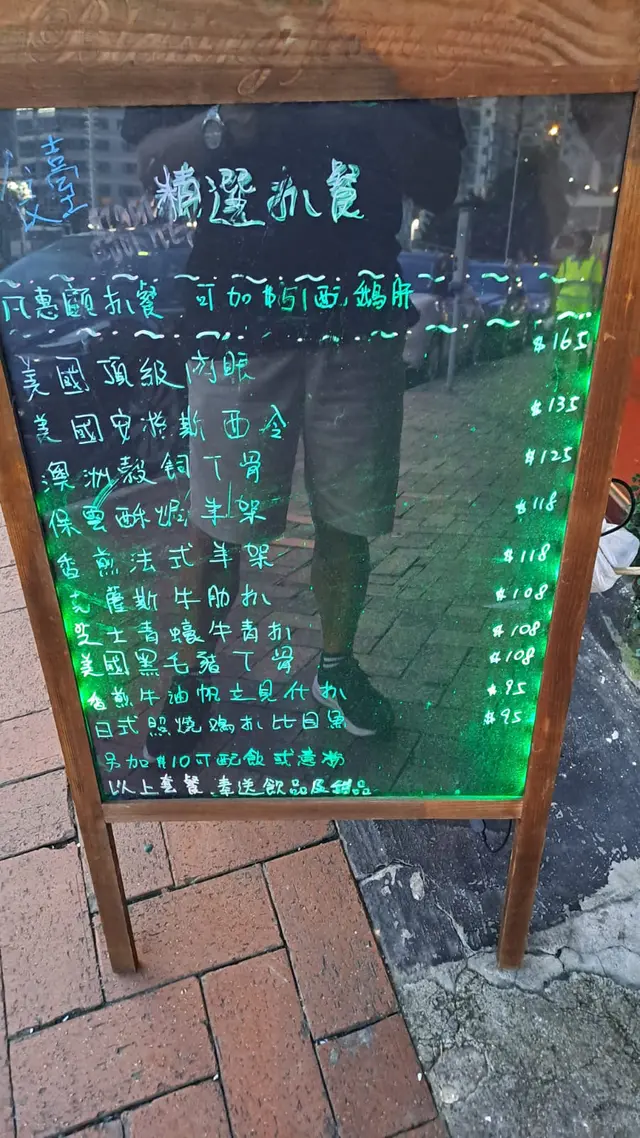 精選扒餐
凡惠顧扒餐 可加$51配鵝肝
美國頂級肉眼 $165
美國安格斯西冷 $135
澳洲穀飼丁骨 $125
保雲酥焗羊架 $118
香煎法式羊架 $118
牛肋扒 $108
芝士青蠔牛青扒 $108
美國黑毛豬丁骨 $108
香煎牛油帆立貝什扒 $95
日式照燒鷄扒比目魚 $95
另加$10可配飲或湯
以上套餐 奉送飲品及甜品